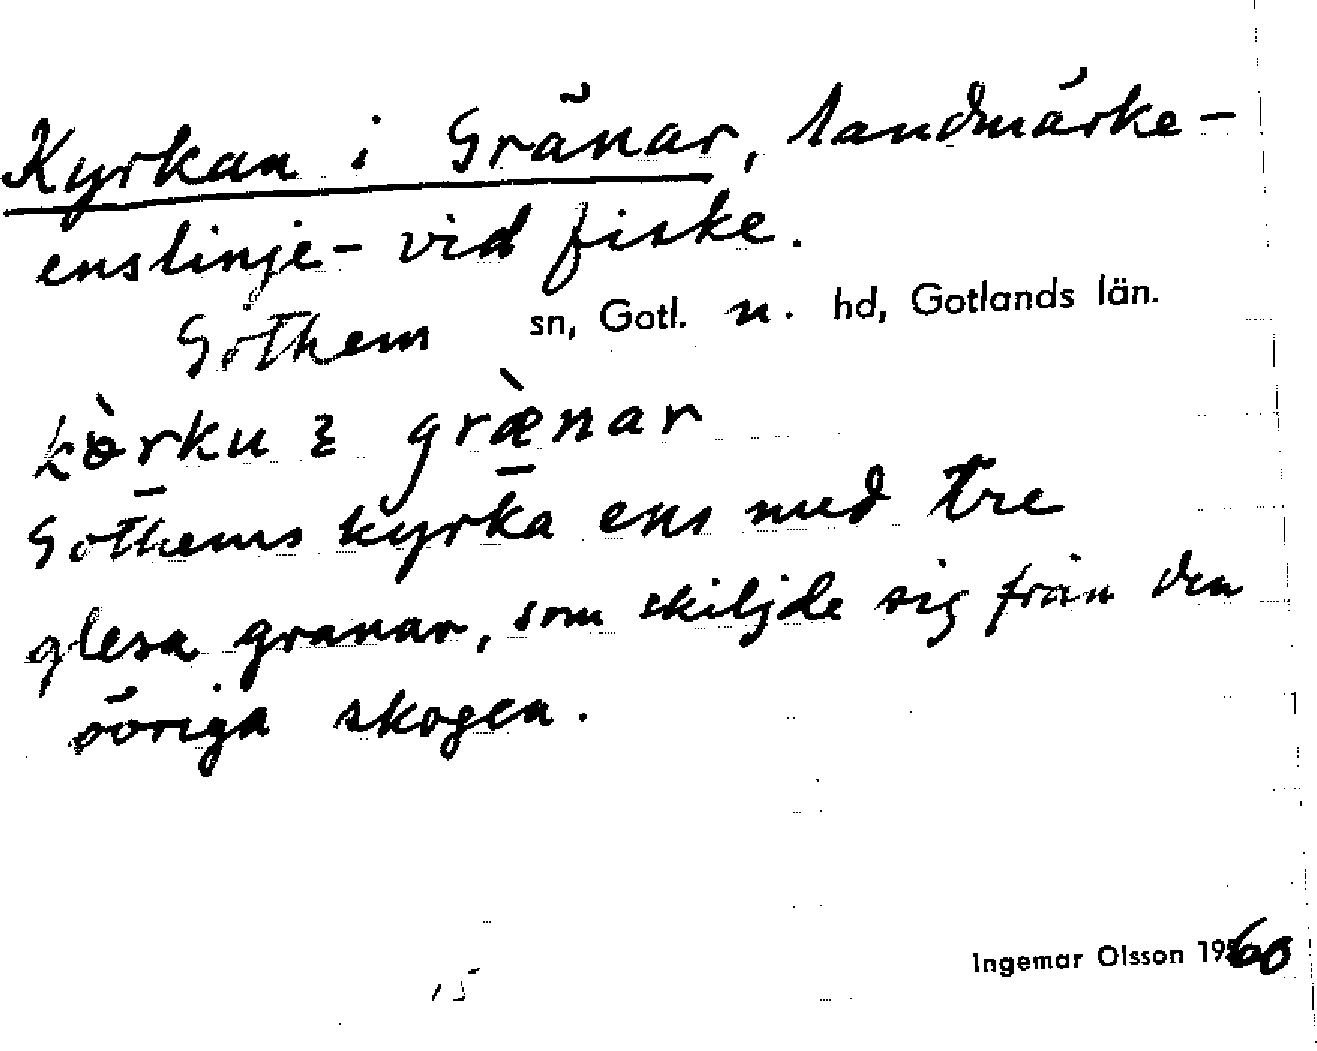 Kyrkan i Gränar, landmärke -
enslinje - vid fiske.
Gothem sn, Gotl. n. hd, Gotlands län.
grænar
Gothems kyrka ens med tre
glesa granar, som skiljde sig från den
övriga skogen.
Ingemar Olsson 1960
15